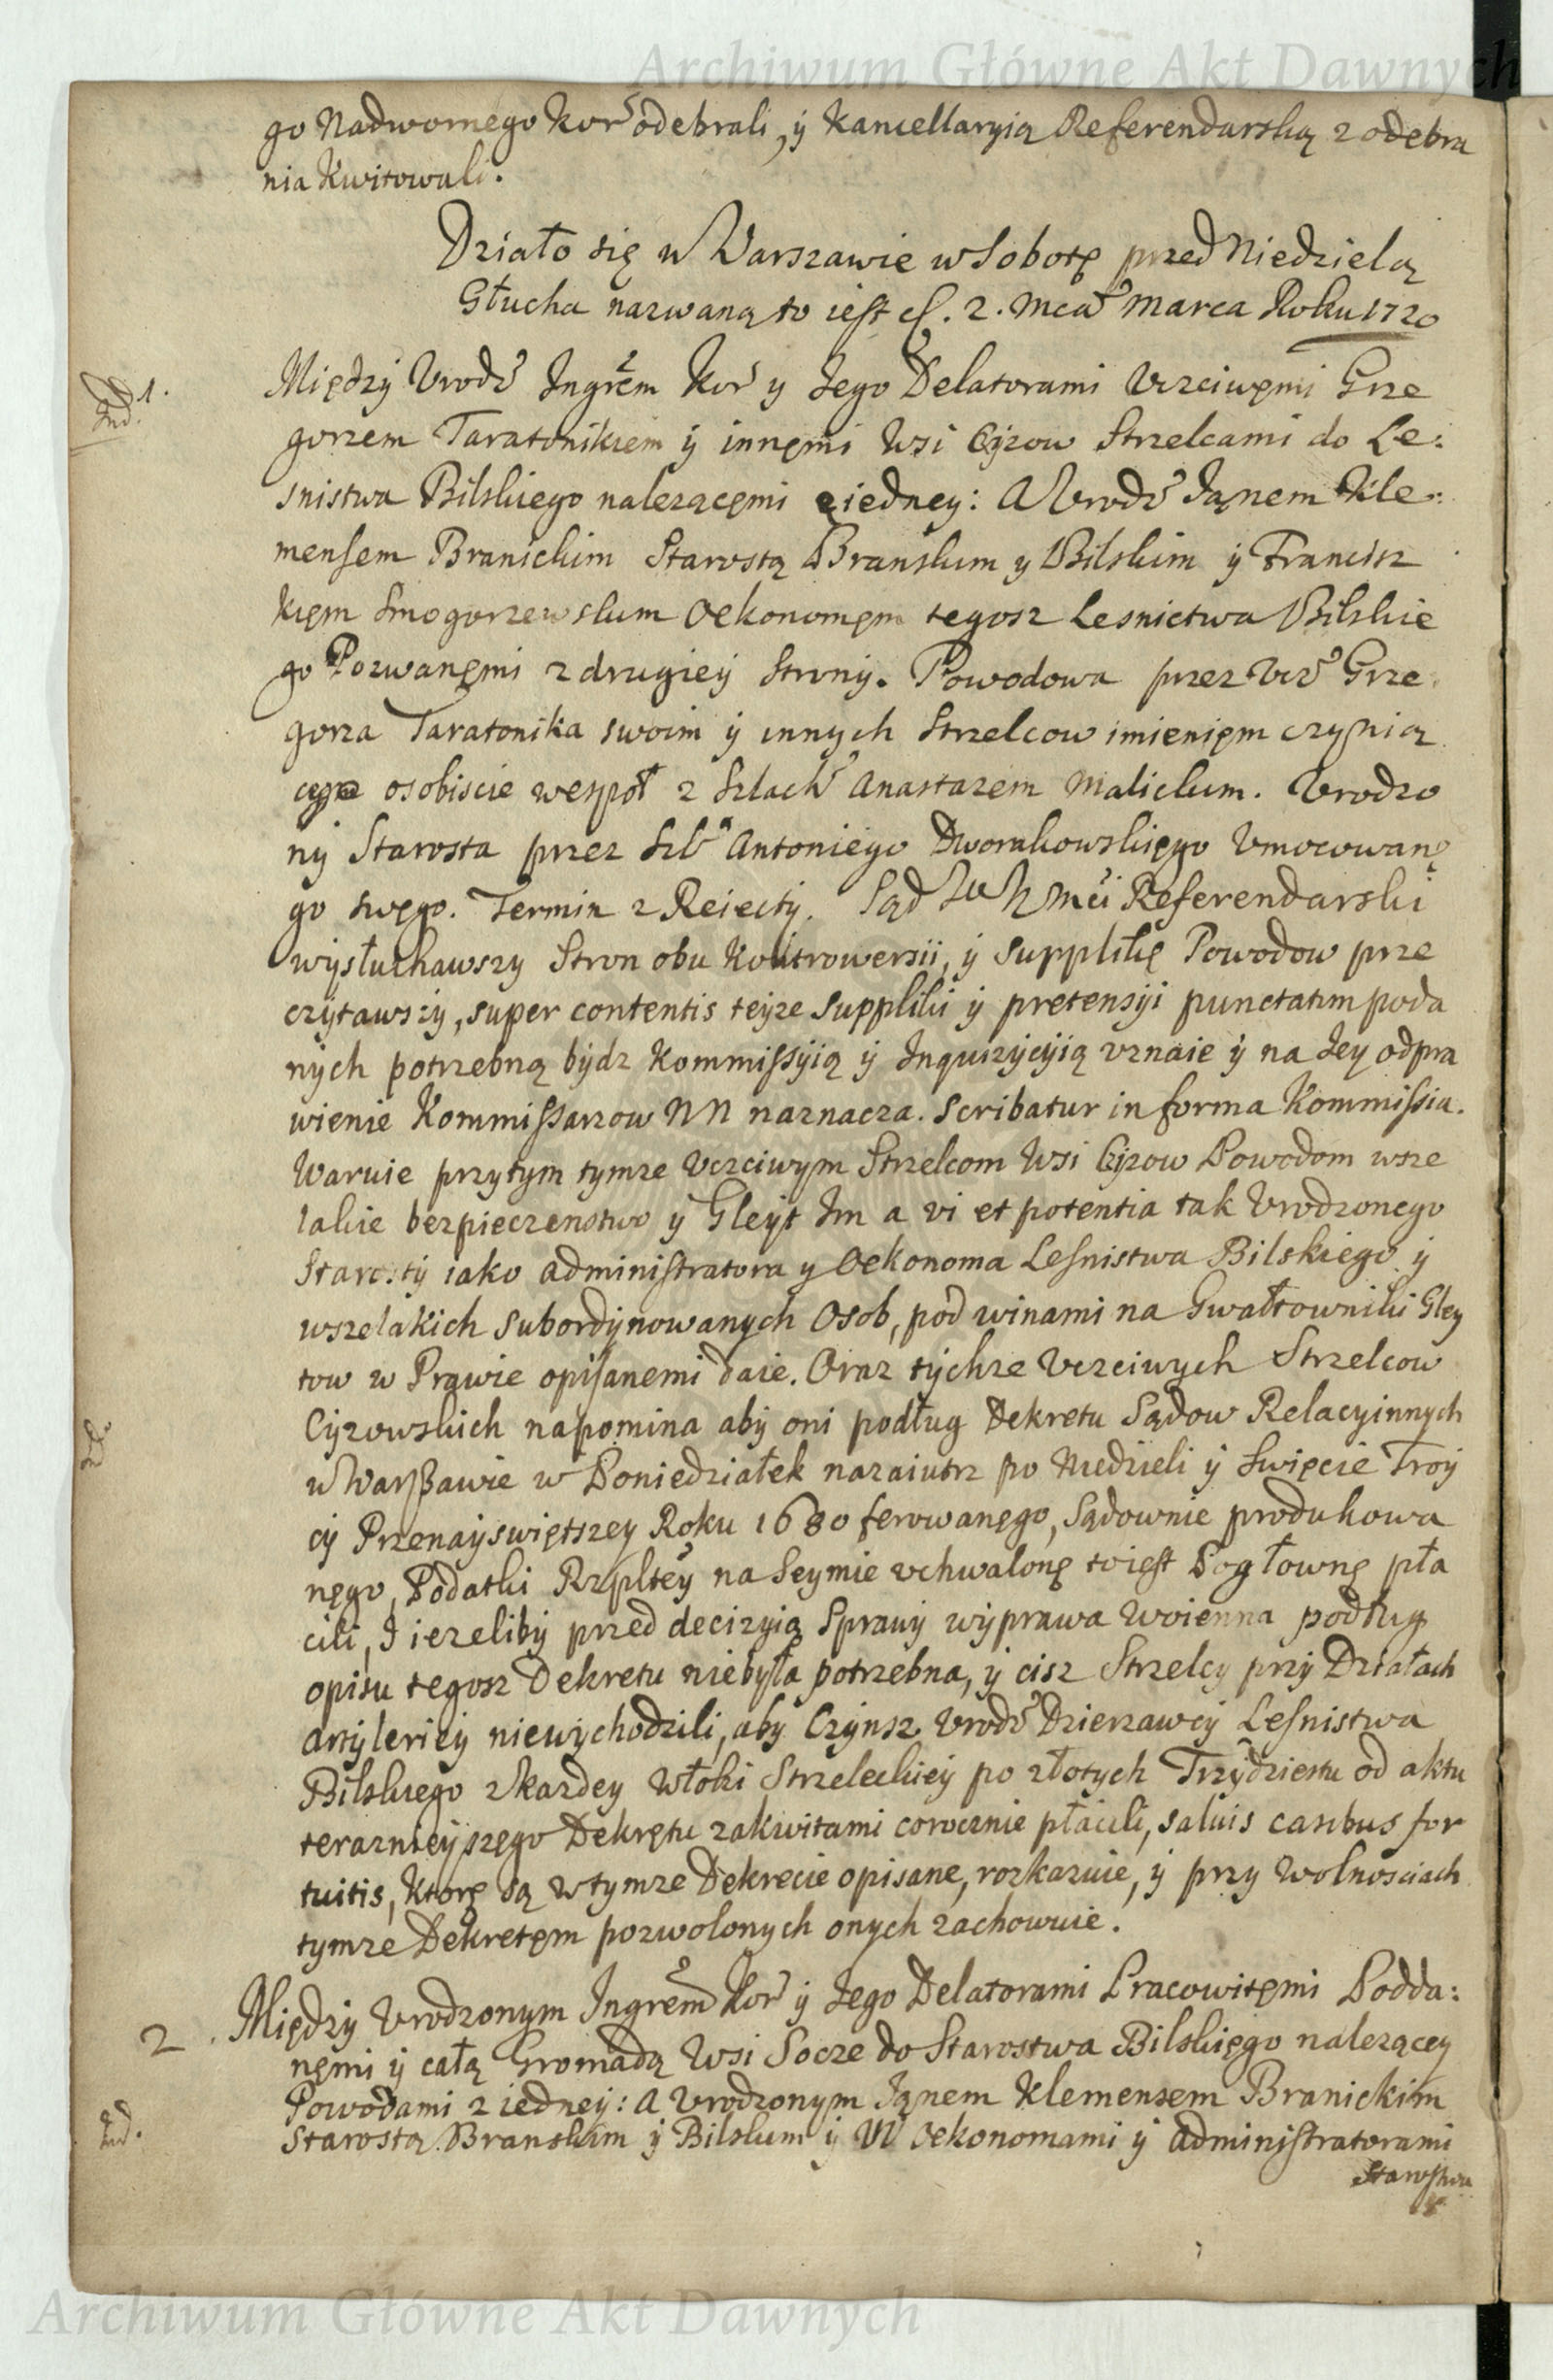 Archiwum Główne Akt Dawnych
go Nadwornego Kor odebrali, ÿ Kancellaryią Referendarską z odebra
nia Kwitowali.
Działo się w Warszawie w Sobotę przed Niedzielą
Głucha nazwaną to iest d. 2. Mca Marca Roku 1720
1. Między Urodz Ingrem Kor y Jego Delatorami Uczciwęmi Grze
Ind.
gorzem Taratonikiem ÿ innęmi Wsi Cyzow Strzelcami do Le:
snistwa Bilskiego nalezącęmi z iedney: A Urodz Janem Kle:
mensem Branickim Starostą Branskim y Bilskim ÿ Francisz
kięm Smogorzewskim Oekonomęm tegosz Lesnictwa Bilskie
go Pozwanęmi z drugieÿ Stronÿ. Powodowa przez Ucz Grze
gorza Taratonika swoim ÿ innych Strzelcow imienięm czynią
cego osobiscie wespoł z Szlach Anastazem Malickim. Urodzo
nÿ Starosta przez Szl Antoniego Dworakowskięgo Umocowanę
go swęgo. Termin z Reiectÿ. Sąd Mci Referendarski
wÿsłuchawszy Stron obu Kontrowersii, ÿ Supplikę Powodow prze
czÿtawszÿ, super contentis teÿze Suppliki ÿ pretensÿi punctatim poda
nÿch potrzebną bÿdz Kommissÿią ÿ Inquizÿcÿią uznaie ÿ na Jey odpra
wienie Kommissarzow NN naznacza. Scribatur in forma Kommissia.
Waruie przytym tymze Uczciwym Strzelcom Wsi Cyzow Powodom wsze
lakie bezpieczenstwo ÿ Gleÿt Im a vi et potentia tak Urodzonego
Starostÿ iako Administratora y Oekonoma Lesnistwa Bilskiego ÿ
wszelakich Subordÿnowanych Osob, pod winami na Gwałtowniki Gley
tow w Prawie opisanemi daie. Oraz tÿchze Uczciwych Strzelcow
Cyzowskich napomina abÿ oni podług Dekretu Sądow Relacyinnych
w Warszawie w Poniedziałek nazaiutrz po Niedzieli ÿ Swięcie Troÿ
cÿ Przenaÿswiętszey Roku 1680 ferowanęgo, Sądownie produkowa
nęgo, Podatki Rzpltey na Seymie uchwalonę toiest Pogłownę pła
cili, I iezelibÿ przed decizyią Sprawÿ wÿprawa woienna podług
opisu tegosz Dekretu niebÿła potrzebna, ÿ cisz Strzelcy przÿ Działach
Artÿlerieÿ niewychodzili, abÿ Czÿnsz Urodz Dzierzawcÿ Lesnistwa
Bilskiego z kazdey Włoki Strzeleckieÿ po złotych Trzÿdziestu od aktu
terazniejszęgo Dekrętu zakwitami corocznie płacili, salvis casibus for
tuitis, ktorę są w tymze Dekrecie opisane, rozkazuie, ÿ przy Wolnosciach
tymze Dekretęm pozwolonych onych zachowuie.
2. Międzÿ Urodzonym Ingrem Kor ÿ Jego Delatorami Pracowitęmi Podda:
nęmi ÿ całą Gromadą Wsi Socze do Starostwa Bilskięgo nalezącey
Powodami z iedneÿ: A Urodzonym Janem Klemensem Branickim
Ind.
Starostą Branskim ÿ Bilskim ÿ UU Oekonomami ÿ Administratorami
Starostwa
Archiwum Główne Akt Dawnych